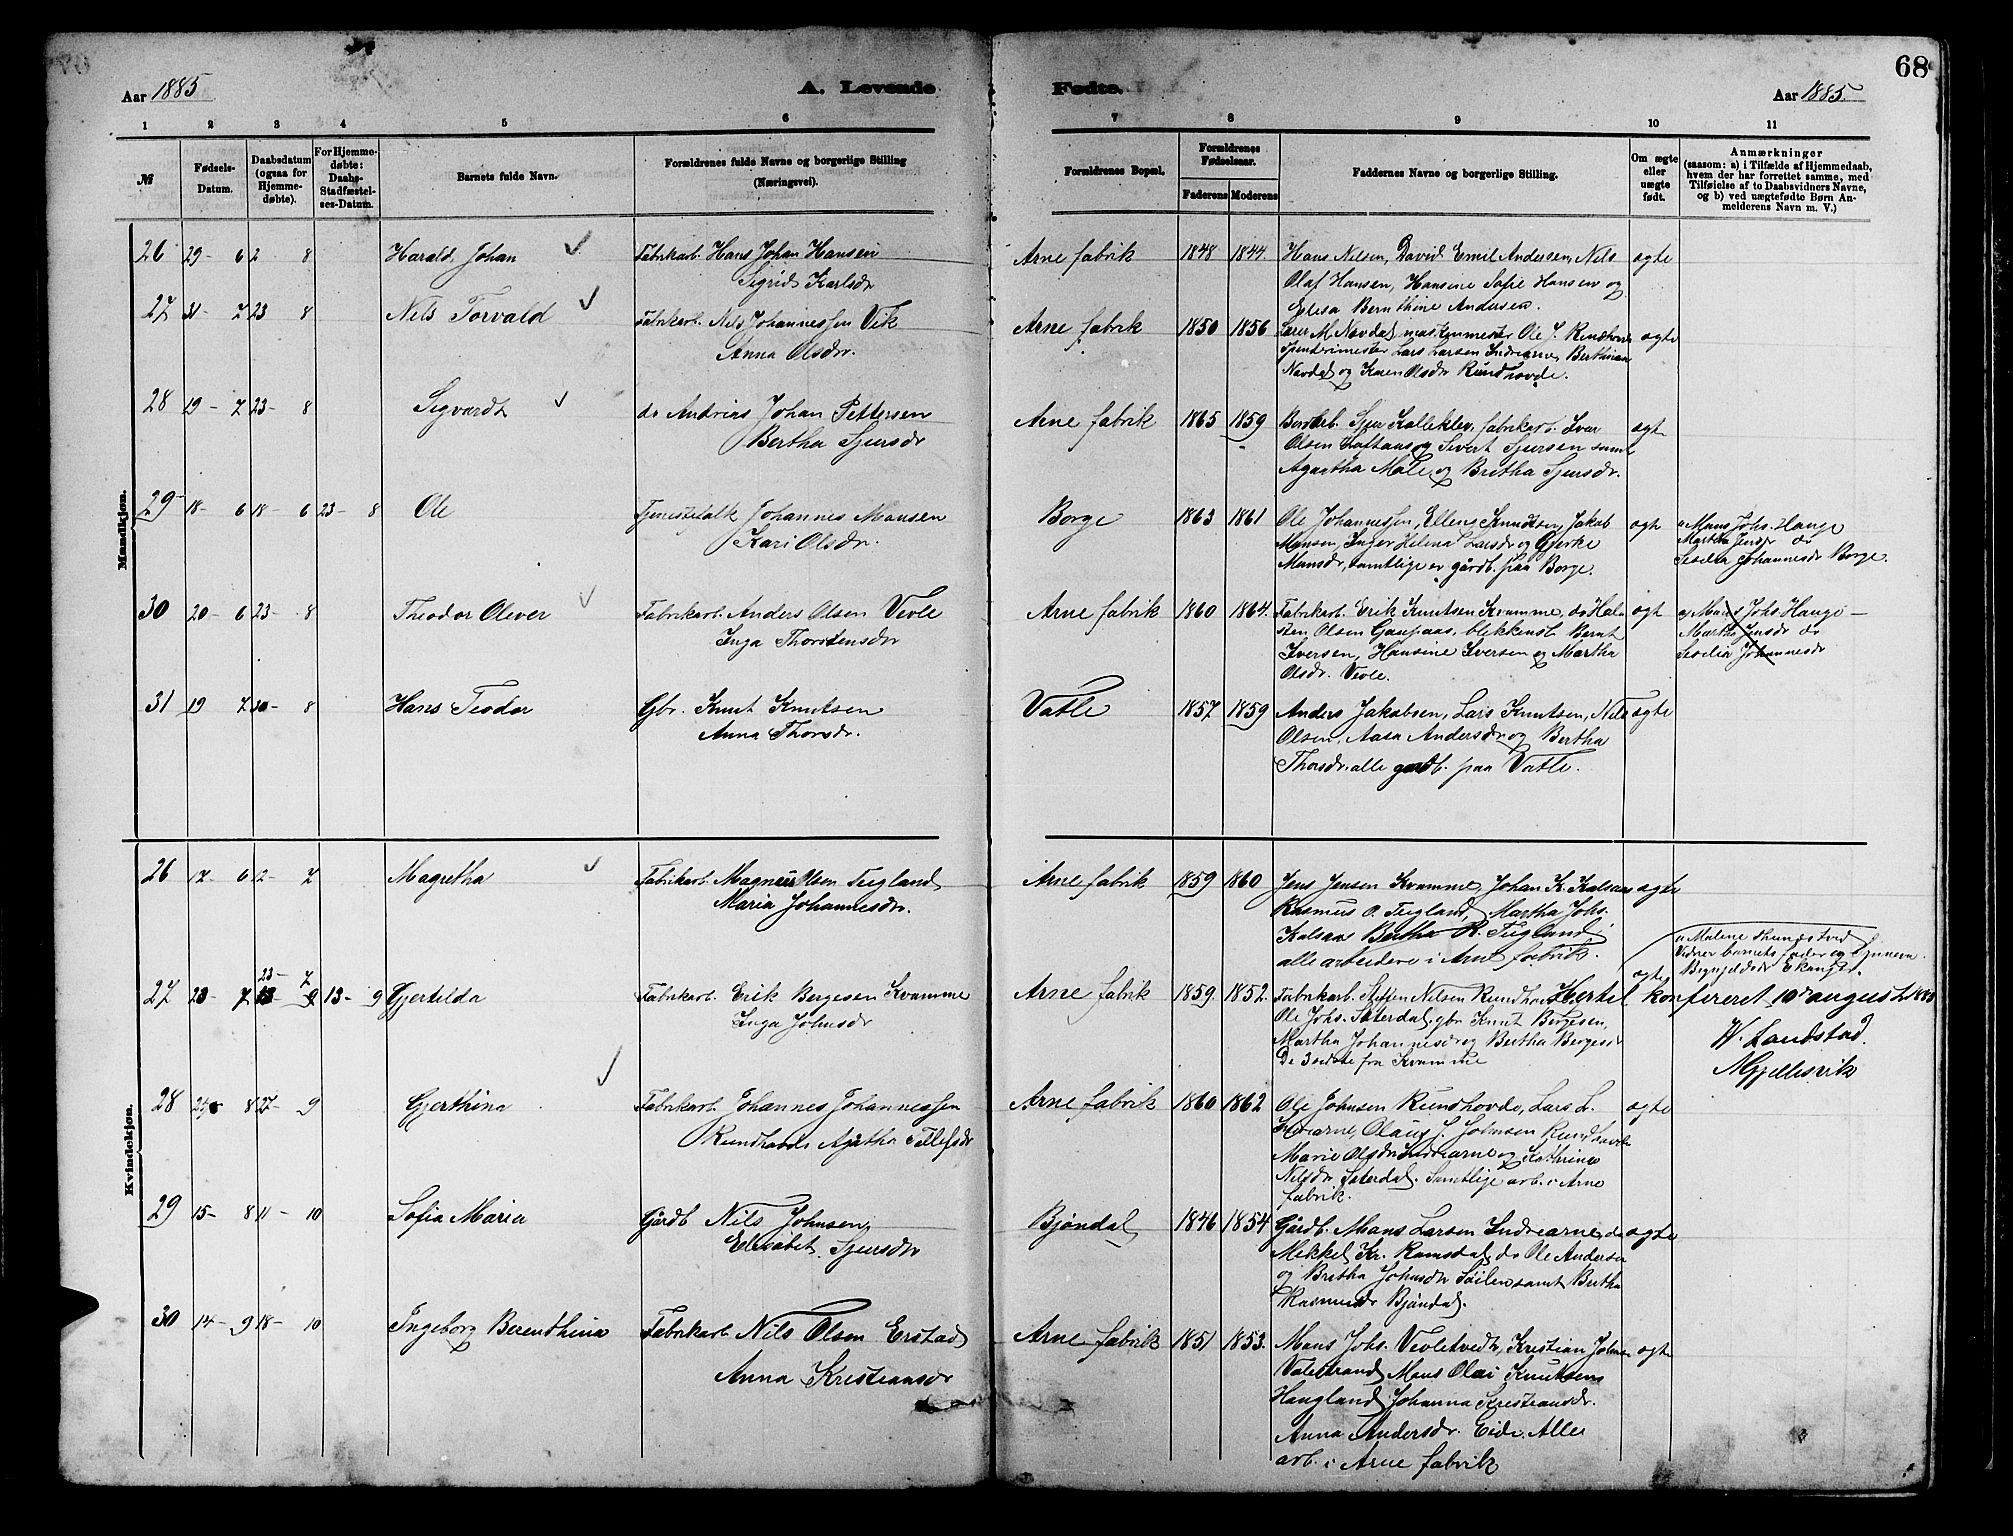 68
Aar 1885
A. Levende
Fødte.
Aar 1885.
1 2 3 4 5 6 7 8 9 10 11
№
Fødsels-
Datum.
Daabsdatum
(ogsaa for
Hjemme-
døbte).
For Hjemme-
døbte:
Daabs-
Stadfæstel-
ses-Datum.
Barnets fulde Navn.
Forældrenes fulde Navne og borgerlige Stilling
(Næringsvei).
Forældrenes Bopæl.
Forældrenes
Fødselsaar.
Faderens Moderens
Faddernes Navne og borgerlige Stilling.
Om ægte
eller
uægte
født.
Anmærkninger
(saasom: a) i Tilfælde af Hjemmedaab,
hvem der har forrettet samme, med
Tilføielse af to Daabsvidners Navne,
og b) ved uægtefødte Børn An-
melderens Navn m. V.)
Mandkjøn.
26 29- 6 2 8 Harald Johan Fabrikarb. Hans Johan Hansen
Sigrid Karlsdr
Arne fabrik 1848 1844 Hans Nilsen, David Emil Andersen, Nils ægte
Olaf Hansen, Hansine Sofie Hansen og
Bernthine Andersen.
27 31- 7 23 8 Nils Torvald Fabrikarb. Nils Johannessen Vik
Anna Olsdr.
Arne fabrik 1850 1856 Lærer M. Navdal, maskinmester Ole J. ægte
Spinderimester Lars Larsen Indrearne, Berthine
Navdal og Karen Olsdr Rundhovde.
28 19- 7 23- 8 Sigvardt do Andreas Johan Pettersen
Bertha Sjursdr
Arne fabrik 1865 1859 Sjur Kalleklev, fabrikarb. Ivar ægte
Olsen og Sivert Sjursen samt
Agartha Male og Britha Sjursdr.
29 18- 6 18- 6 23- 8 Ole Tjenestefolk Johannes Monsen
Kari Olsdr.
Borge 1863 1861 Ole Johannessen, Elling Knudtsen, Jakob ægte
Monsen, Inger Helena Larsdr og Gjerke
Monsdr, samtlige er gårdb. paa Borge.
a Mons Johs. Hauge
Martha Jensdr do
Sesilia Johannesdr Borge.
30 20- 6 23- 8 Theodor Olever Fabrikarb. Anders Olsen Vevle
Inga Thorstensdr
Arne fabrik 1860 1864. Fabrikarb. Erik Knutsen Kvamme, do Hal- ægte
sten Olsen Gaupaas, blikkensl. Bernt
Iversen, Hansine Iversen og Martha
Olsdr. Vevle.
a) Mons Johs Hauge
Martha Jensdr do
Sesilia Johannesdr
31 19 7 20- 8 Hans Teodor Gbr. Knut Knutsen
Anna Thorsdr.
Vatle 1857 1859 Anders Jakobsen, Lars Knutsen, Nils ægte
Olsen, Aasa Andersdr og Bertha
Thorsdr. alle gårdb. paa Vatle.
Kvindekjøn.
26 17- 6 12- 7 Magretha Fabrikarb. Magnus Olsen Tugland
Maria Johannesdr.
Arne fabrik 1859 1860 Jens Jensen Kvamme, Johan K. Kalsaas ægte
Rasmus O. Tugland, Martha Johs.
Kalsaas Bertha R. Tugland
alle arbeidere i Arne fabrik.
27 23- 7 23- 7 13- 9 Gjertilda Fabrikarb. Erik Bergesen Kvamme
Inga Johnsdr
Arne fabrik 1859. 1852. Fabrikarb. Steffen Nilsen ægte
Ole Johs. Saterdal, gbr Knut Bergesen,
Martha Johannesdr og Bertha Bergesdr
De 3 sidste fra Kvamme
a Malene
Vidner barnets fader og
Hertil konfereret 10de august 1885
W. Landstad.
28 24 8 27- 9 Gjerthina Fabrikarb. Johannes Johannessen
Rundhovde Agatha Tllefsdr
Arne fabrik 1860 1862 Ole Johnsen Rundhovde, Lars L. ægte
Olaus J. Johnsen Rundhovde
Marie Olsdr Indrearne og Kathrine
Nilsdr Saterdal. Samtlige arb. i Arne
fabrik.
29 15- 8 11- 10 Sofia Maria Gårdb Nils Johnsen,
Elisabet Sjursdr
Bjøndal 1846 1854 Gårdb. Mons Larsen Indrearne, do ægte
Mikkel Kr. Ramsdal, do Ole Andersen
og Britha Johnsdr samt Bertha
Rasmusdr Bjøndal.
30 14- 9 18- 10 Ingeborg Berenthina Fabrikarb Nils Olsen Erstad
Anna Kristiansdr
Arne fabrik 1851 1853. Mons Johs. Vevletvedt, Kristian Johnsen ægte
Valestrand Mons Olai Knutsen
Haugland, Johanna Kristiansdr.
Anna Andersdr. Eide. Alle
arb. i Arne fabrik